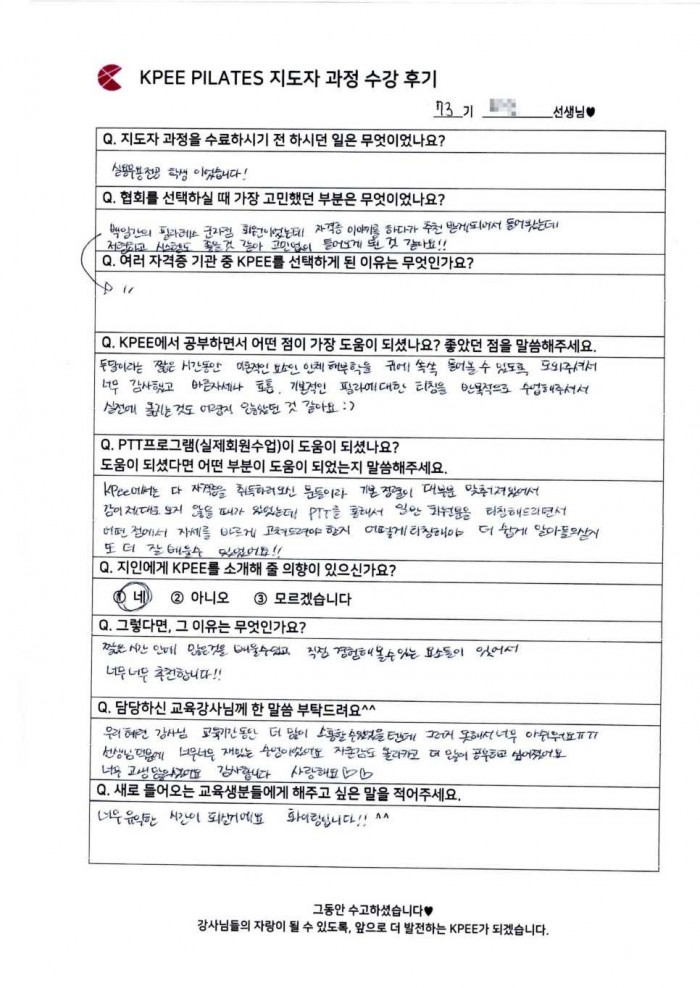 KPEE PILATES 지도자 과정 수강 후기
73 기 선생님♥
Q. 지도자 과정을 수료하시기 전 하시던 일은 무엇이었나요?
실용무용전공 학생 이었습니다!
Q. 협회를 선택하실 때 가장 고민했던 부분은 무엇이었나요?
백일간의 필라테스 군자점 회원이었는데 자격증 이야기를 하다가 추천 받게되어서 들어봤는데
저렴하고 시스템도 좋은것 같아 고민없이 들어오게 된 것 같아요!!
Q. 여러 자격증 기관 중 KPEE를 선택하게 된 이유는 무엇인가요?
〃
Q. KPEE에서 공부하면서 어떤 점이 가장 도움이 되셨나요? 좋았던 점을 말씀해주세요.
두달이라는 짧은 시간동안 이론적인 요소인 인체해부학을 귀에 쏙쏙 들어올 수 있도록 도와주셔서
너무 감사했고 바른자세나 호흡, 기본적인 필라에대한 티칭을 반복적으로 수업해주셔서
실전에 옮기는것도 어렵지 않았던 것 같아요 :)
Q. PTT프로그램(실제회원수업)이 도움이 되셨나요?
도움이 되셨다면 어떤 부분이 도움이 되었는지 말씀해주세요.
KPEE에서는 다 자격증을 취득하러오신 분들이라 기본 정렬이 대부분 맞춰져있어서
감이 제대로 오지 않을 때가 있었는데 PTT를 통해서 일반 회원분을 티칭해드리면서
어떤 점에서 자세를 바르게 고쳐드려야 할지 어떻게 티칭해야 더 쉽게 알아들으실지
또 더 잘 배울수 있었어요!!
Q. 지인에게 KPEE를 소개해 줄 의향이 있으신가요?
① 네 ② 아니오 ③ 모르겠습니다
Q. 그렇다면, 그 이유는 무엇인가요?
짧은시간 안에 많은것을 배울수있고 직접 경험해 볼수있는 요소들이 있어서
너무너무 추천합니다!!
Q. 담당하신 교육강사님께 한 말씀 부탁드려요^^
우리 혜련 강사님 교육기간동안 더 많이 소통할수있었을텐데 그러지 못해서 너무 아쉬워요ㅠㅠ
선생님덕분에 너무너무 재밌는 수업이었어요 자존감도 올라가고 더 많이 공부하고 싶어졌어요
너무 고생많으셨어요 감사합니다 사랑해요♡♡
Q. 새로 들어오는 교육생분들에게 해주고 싶은 말을 적어주세요.
너무 유익한 시간이 되실거에요 화이팅입니다!! ^^
그동안 수고하셨습니다♥
강사님들의 자랑이 될 수 있도록, 앞으로 더 발전하는 KPEE가 되겠습니다.